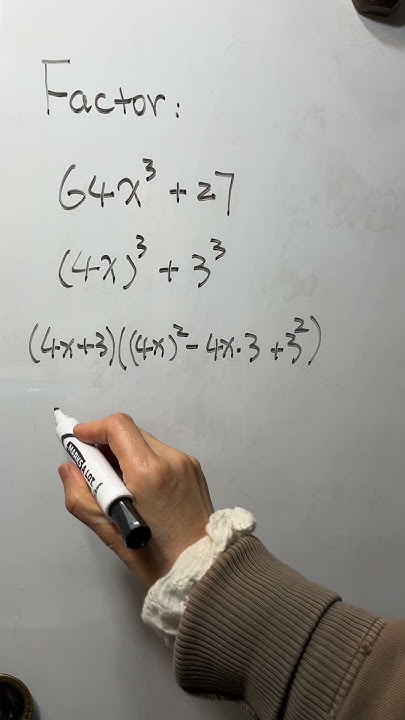 Factor:
64x³ + 27
(4x)³ + 3³
(4x+3)((4x)² - 4x·3 + 3²)
MARKS A LOT